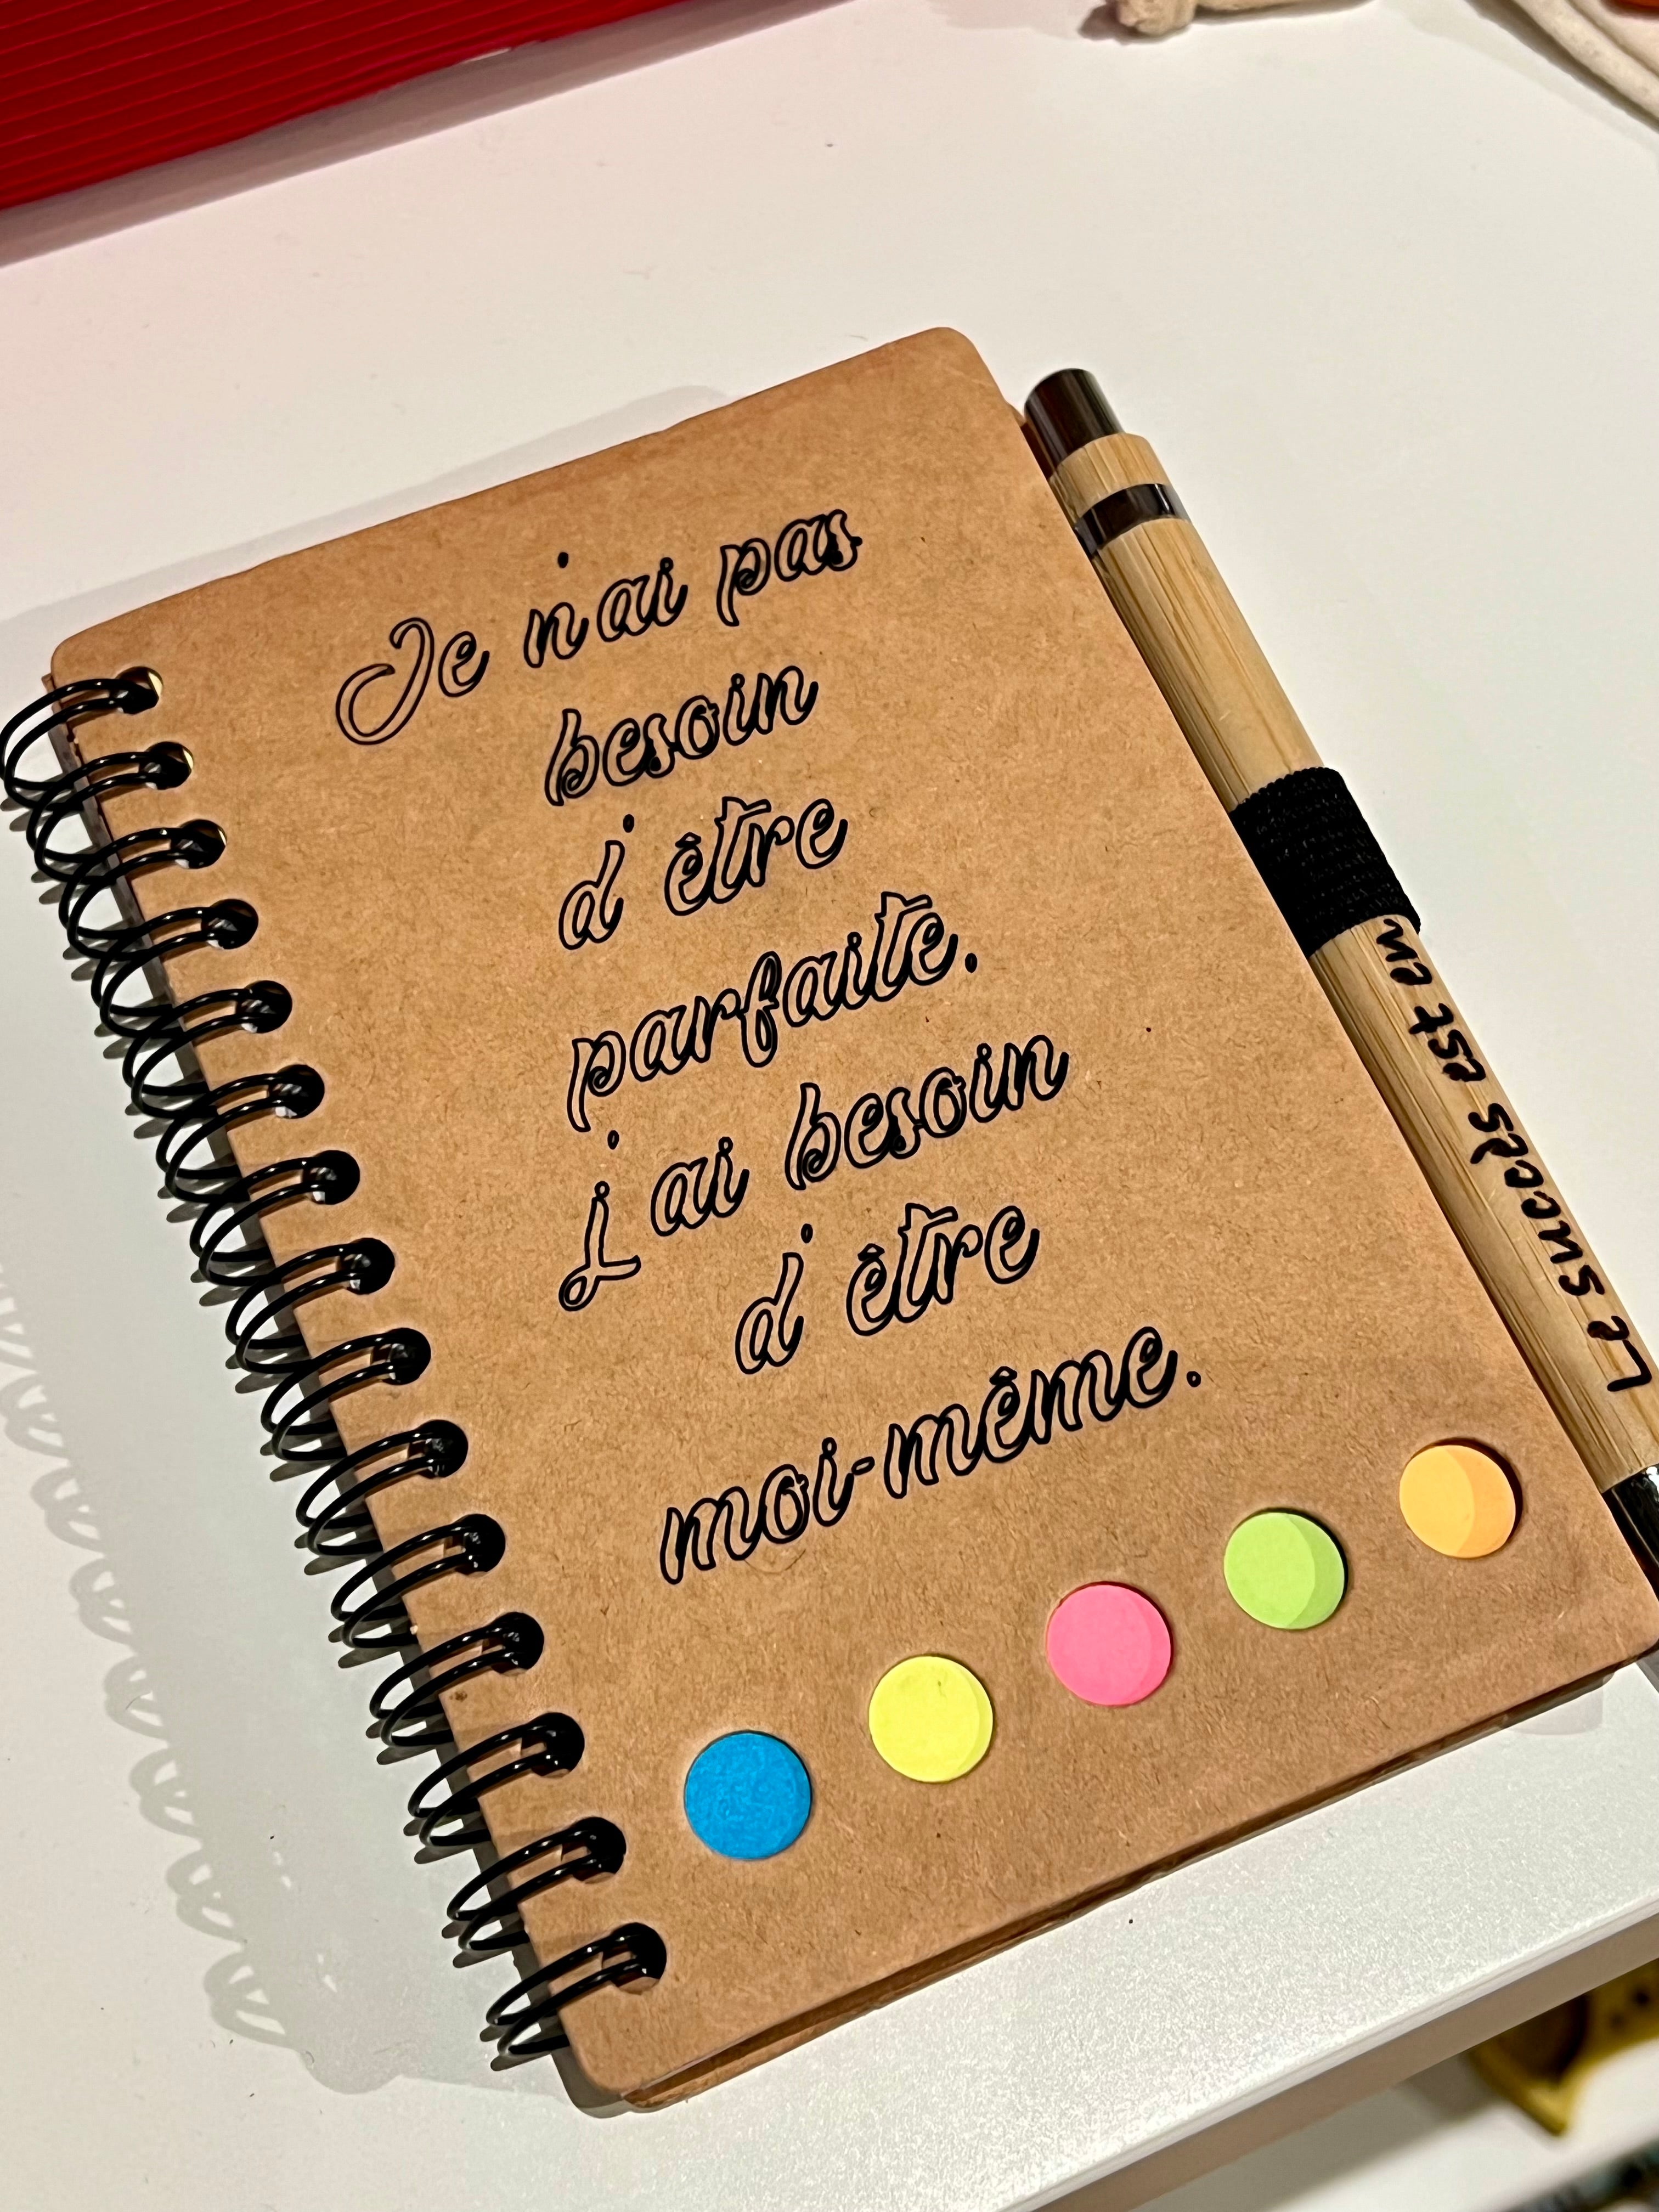 Je n'ai pas
besoin
d'être
parfaite.
j'ai besoin
d'être
moi-même.
Le succès est en